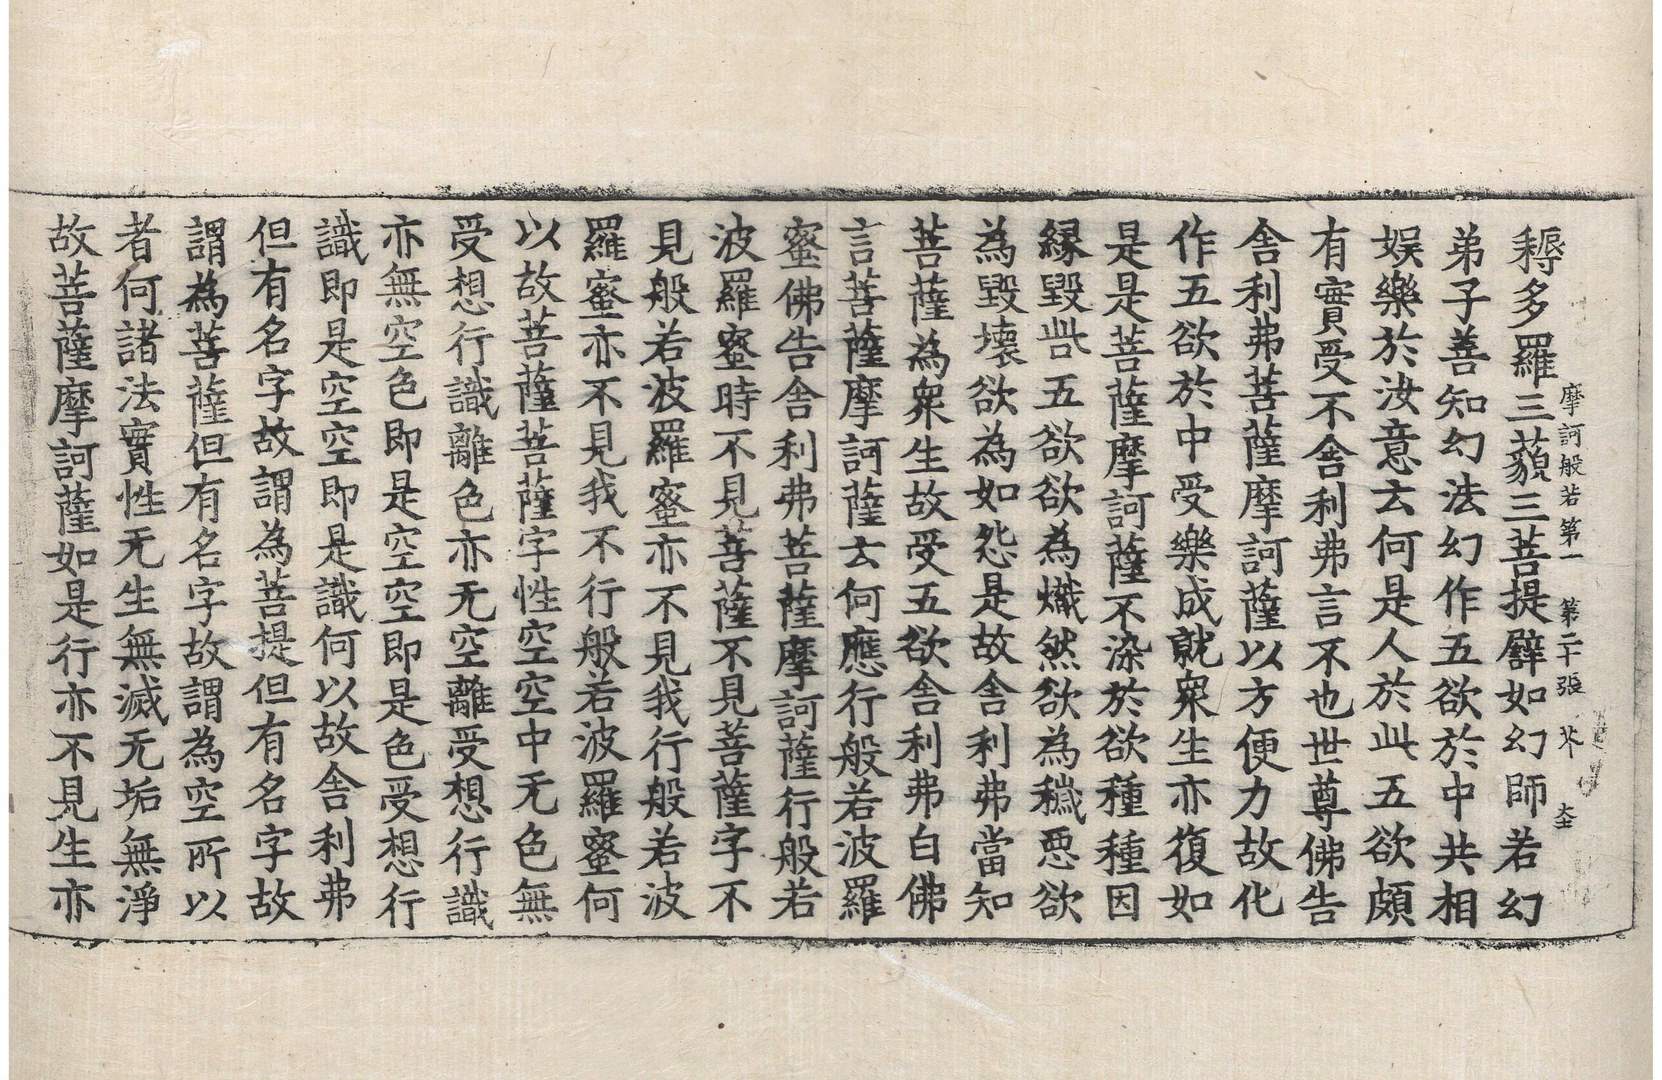 摩訶般若第一 第二十張
耨多羅三藐三菩提譬如幻師若幻
弟子善知幻法幻作五欲於中共相
娛樂於汝意云何是人於此五欲頗
有實受不舍利弗言不也世尊佛告
舍利弗菩薩摩訶薩以方便力故化
作五欲於中受樂成就衆生亦復如
是是菩薩摩訶薩不染於欲種種因
縁毀呰五欲欲為熾然欲為穢惡欲
為毀壞欲為如怨是故舍利弗當知
菩薩為衆生故受五欲舍利弗白佛
言菩薩摩訶薩云何應行般若波羅
蜜佛告舍利弗菩薩摩訶薩行般若
波羅蜜時不見菩薩不見菩薩字不
見般若波羅蜜亦不見我行般若波
羅蜜亦不見我不行般若波羅蜜何
以故菩薩菩薩字性空空中无色無
受想行識離色亦无空離受想行識
亦無空色即是空空即是色受想行
識即是空空即是識何以故舍利弗
但有名字故謂為菩提但有名字故
謂為菩薩但有名字故謂為空所以
者何諸法實性无生無滅无垢無淨
故菩薩摩訶薩如是行亦不見生亦